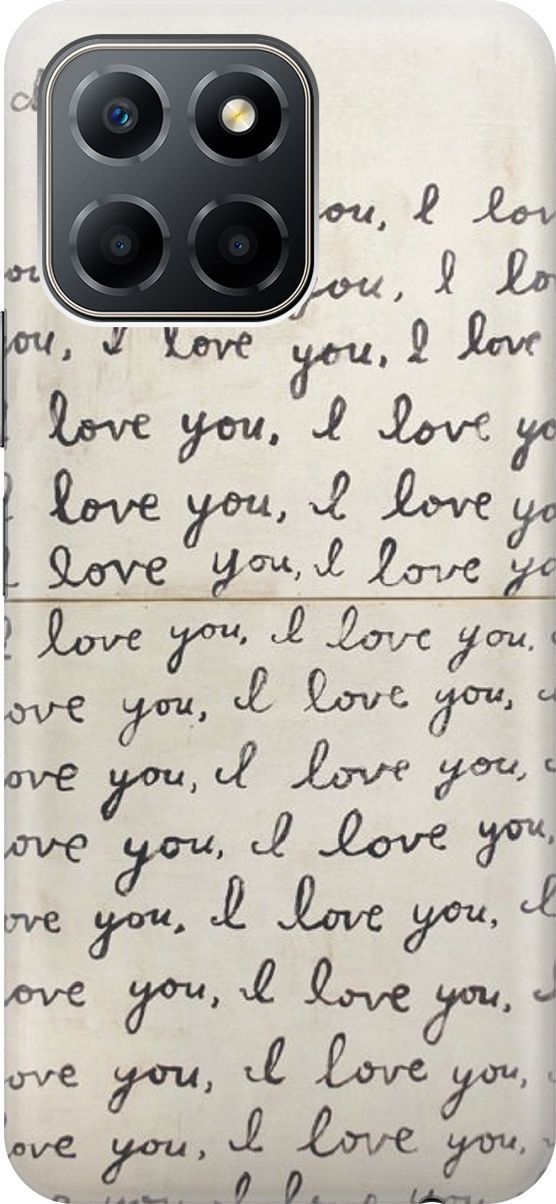 you, I lov
you, I lo
you, I love you, I love
I love you, I love yo
I love you, I love yo
I love you, I love yo
I love you, I love you,
ove you, I love you,
ove you, I love you,
ove you, I love you,
ove you, I love you, I
ove you, I love you,
ove you, I love you,
ove you, I love you,